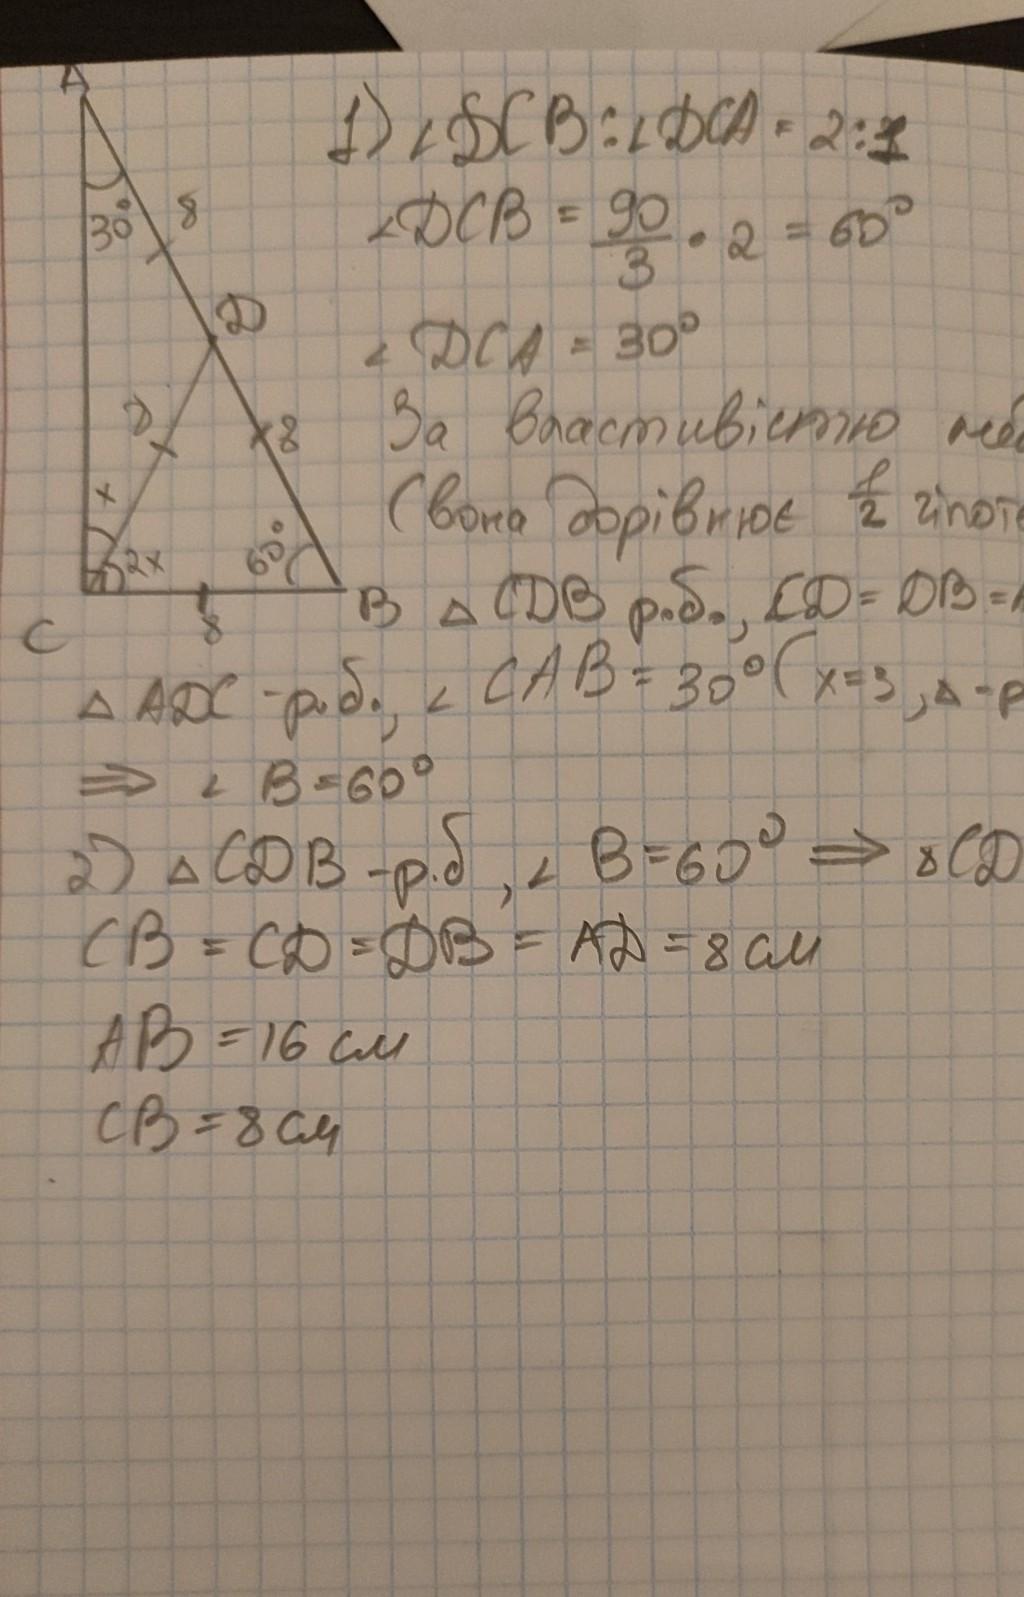 A
30° 8
D
8
x
2x 60°
C 8 B
1) ∠DCB : ∠DCA = 2:1
∠DCB = 90/3 · 2 = 60°
∠DCA = 30°
За властивістю
(вона дорівнює 1/2
△ CDB р.б., CD = DB =
△ ADC - р.б., ∠ CAB = 30° (x=3, △ - р
⇒ ∠ B = 60°
2) △ CDB - р.б, ∠ B = 60° ⇒ 8CD
CB = CD = DB = AD = 8 см
AB = 16 см
CB = 8 см